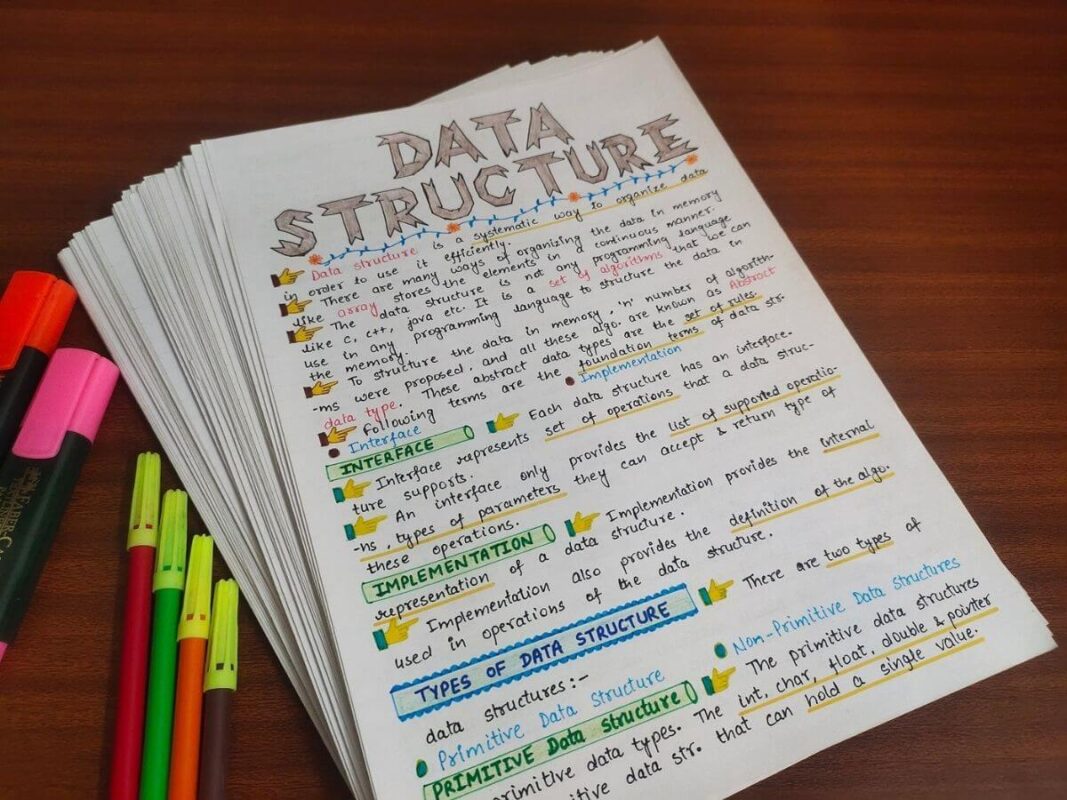 DATA
STRUCTURE
Data structure is a systematic way to organize data
in order to use it efficiently.
There are many ways of organizing the data in memory
like array stores the elements in a continuous manner.
The data structure is not any programming language
like C, C++, java etc. It is a set of algorithms that we can
use in any programming language to structure the data in
the memory.
To structure the data in memory, 'n' number of algorith-
-ms were proposed, and all these algo. are known as Abstract
data type. These abstract data types are the set of rules.
Following terms are the foundation terms of data str.
Interface
Implementation
INTERFACE
Each data structure has an interface.
Interface represents set of operations that a data struc-
ture supports.
An interface only provides the list of supported operatio-
-ns, types of parameters they can accept & return type of
these operations.
IMPLEMENTATION
Implementation provides the internal
representation of a data structure.
Implementation also provides the definition of the algo.
used in operations of the data structure.
TYPES OF DATA STRUCTURE
There are two types of
data structures:-
Primitive Data Structure
Non-Primitive Data Structures
PRIMITIVE Data Structure
The primitive data structures
primitive data types. The int, char, float, double & pointer
data str. that can hold a single value.